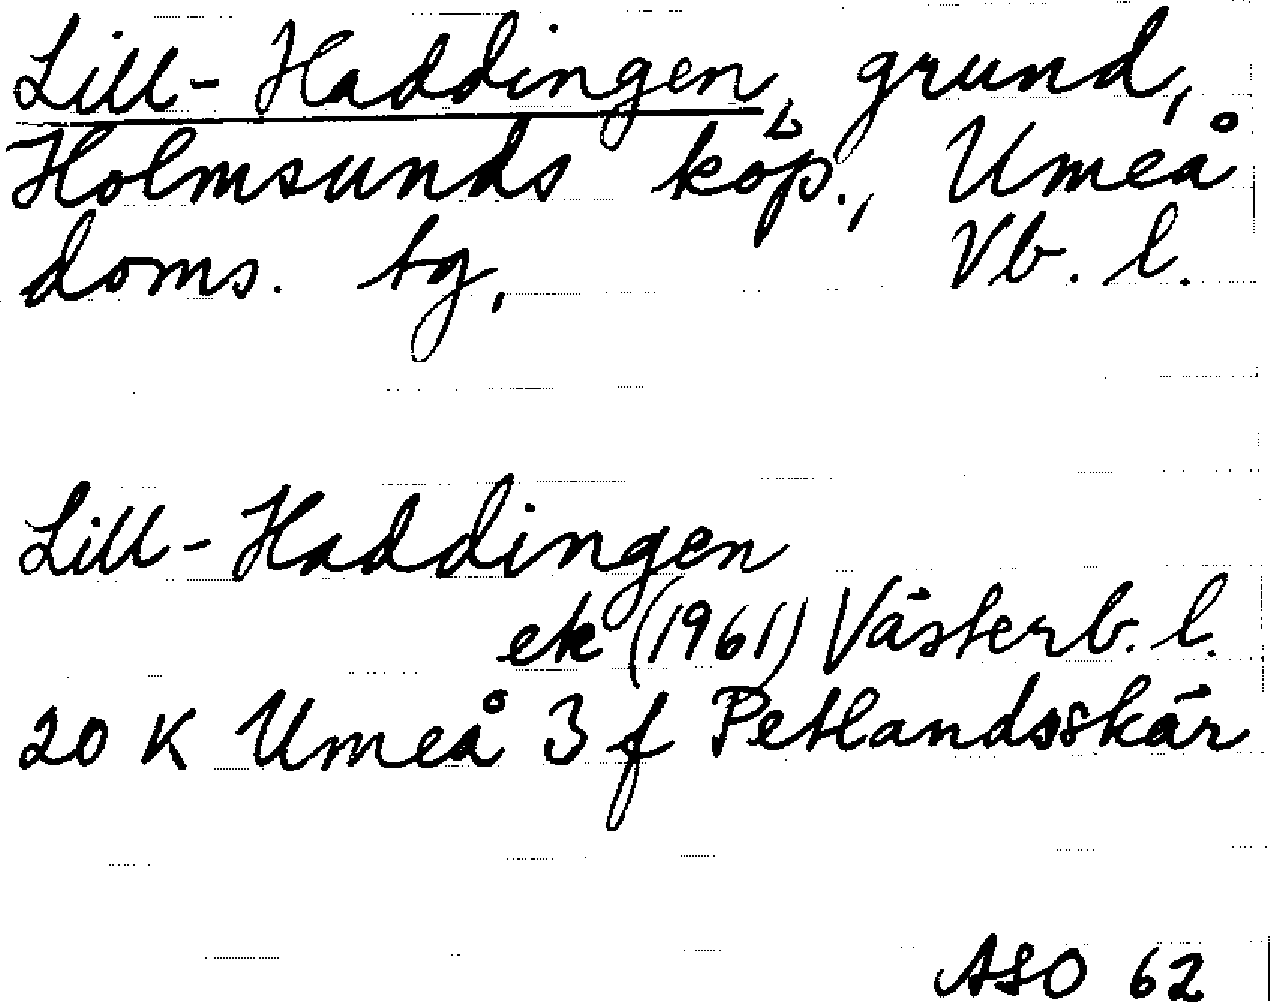 Lill-Haddingen, grund,
Holmsunds köp., Umeå
doms. tg, Vb. l.
Lill-Haddingen
ek (1961) Västerb. l.
20 K Umeå 3 f Petlandsskär
ASO 62